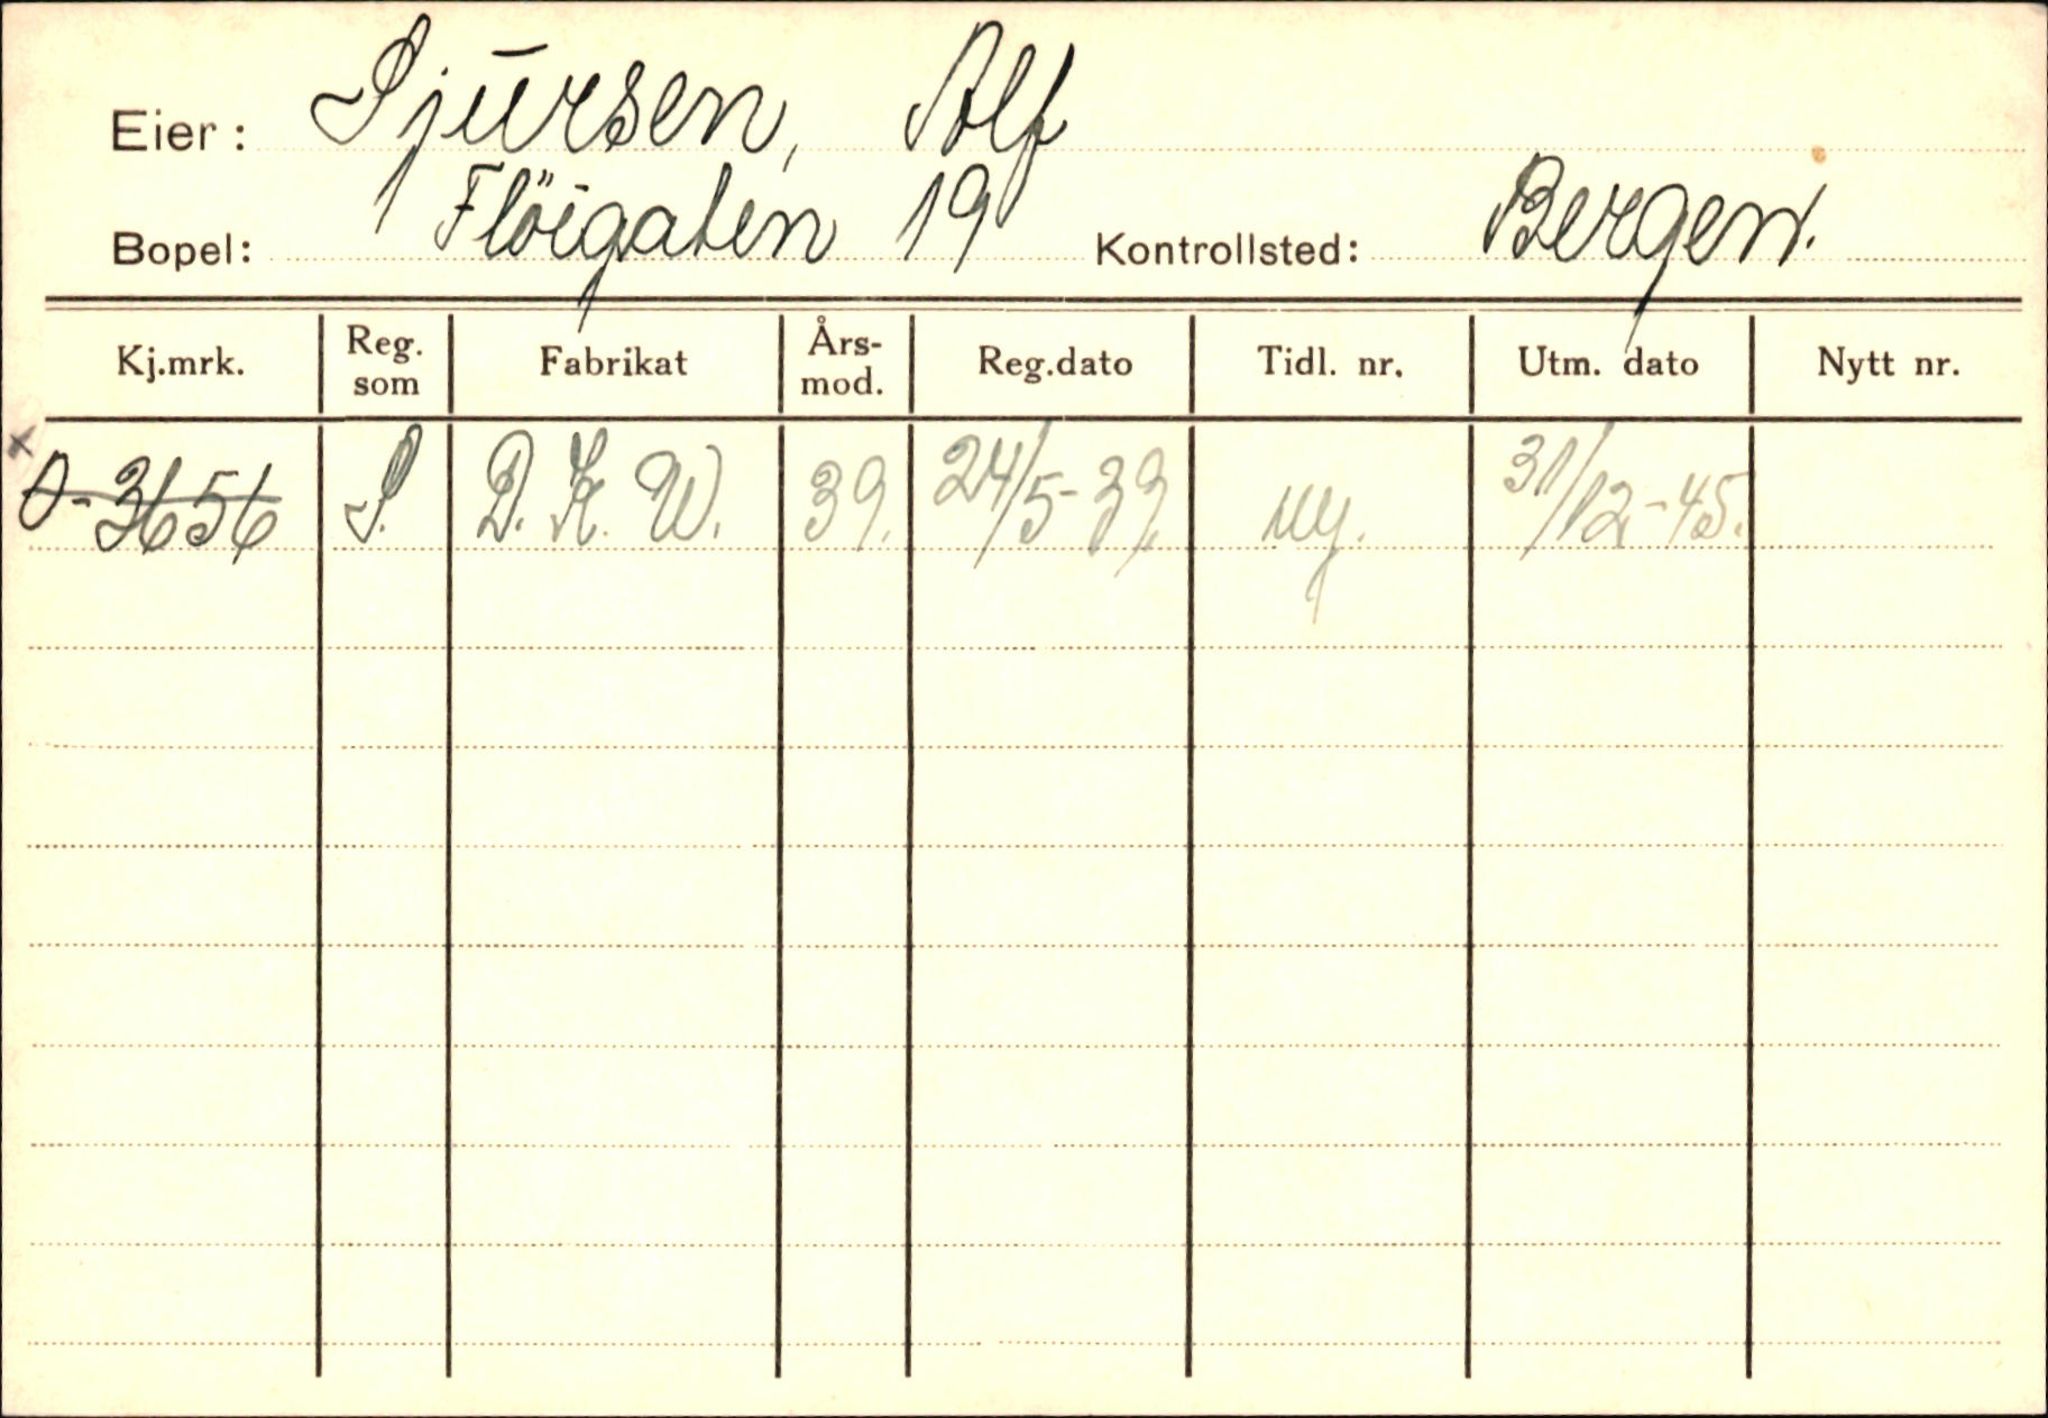 Eier: Sjursen, Alf
Bopel: Flöigaten 19 Kontrollsted: Bergen.
Kj.mrk. Reg. som Fabrikat Års- mod. Reg.dato Tidl. nr. Utm. dato Nytt nr.
x O-3656 S. D.K.W. 39. 24/5-39. ny. 31/12-45.